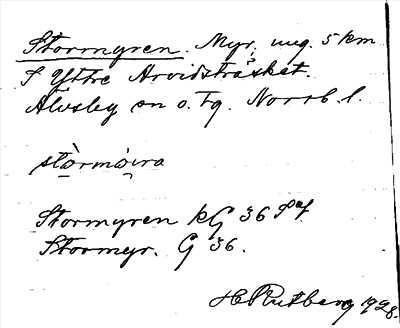 Stormyren. Myr, ung. 5 km
S Yttre Arvidsträsket.
Älvsby sn o. tg. Norrb. l.
stòrmỳra
Stormyren kG 36 S af
Stormyr. G 36.
H Rutberg 1928.